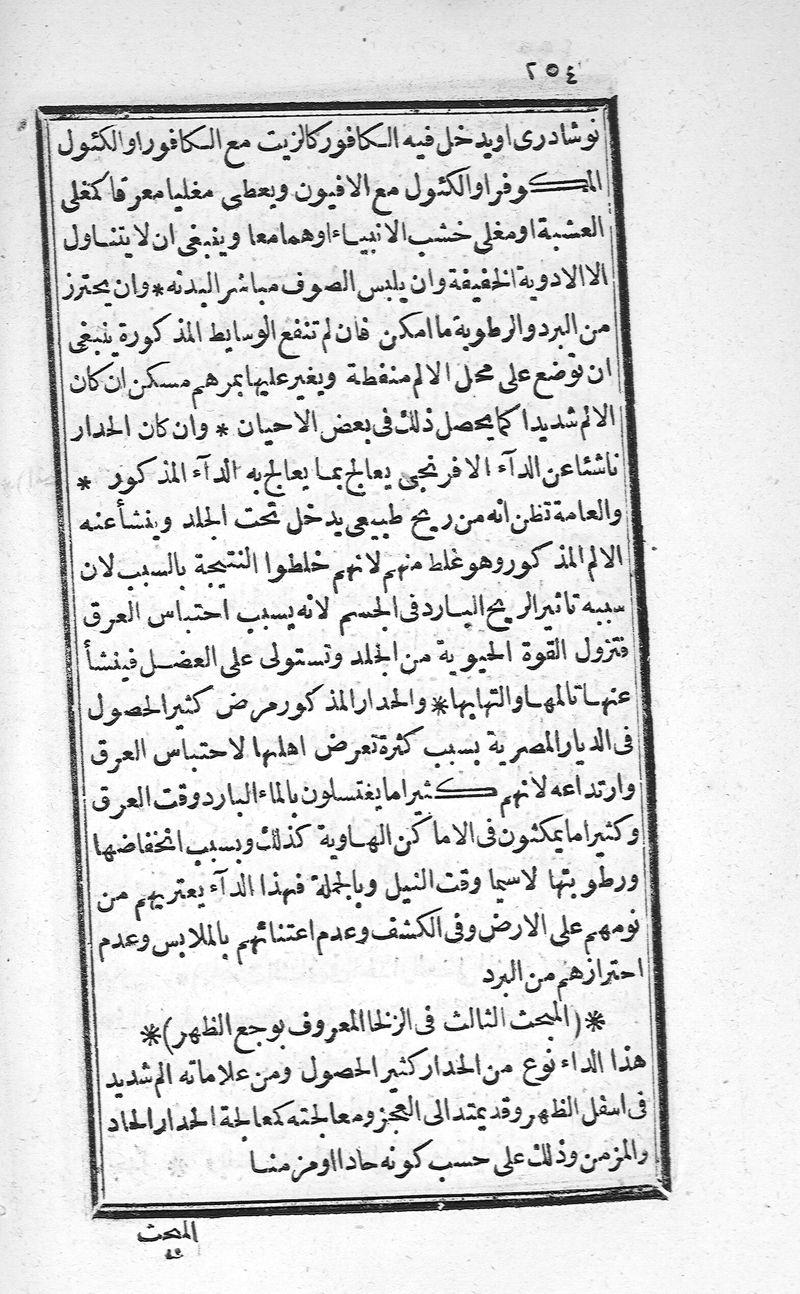 ٢٥٤
نوشادرى اويدخل فيه الكافور كالزيت مع الكافور او الكئول
المكوفر او الكئول مع الافيون ويعطى مغليا معرقا كمغلى
العشبة او مغلى خشب الانبياء او همامعا وينبغى ان لا يتناول
الا الادوية الخفيفة وان يلبس الصوف مباشر البدنه * وان يحترز
من البرد والرطوبة ما امكن فان لم تنفع الوسايط المذكورة ينبغى
ان توضع على محل الالم منفطة ويغير عليها بمرهم مسكن ان كان
الالم شديدا كما يحصل ذلك فى بعض الاحيان * وان كان الحدار
ناشئا عن الدآء الافرنجى يعالج بما يعالج به الدآء المذكور *
والعامة تظن انه من ريح طبيعى يدخل تحت الجلد وينشأ عنه
الالم المذكور وهو غلط منهم لانهم خلطوا النتيجة بالسبب لان
سببه تاثير الريح البارد فى الجسم لانه يسبب احتباس العرق
فتزول القوة الحيوية من الجلد وتستولى على العضل فينشأ
عنها تالمها والتهابها * والحدار المذكور مرض كثير الحصول
فى الديار المصرية بسبب كثرة تعرض اهلها لاحتباس العرق
وارتداعه لانهم كثيرا ما يغتسلون بالماء البارد وقت العرق
وكثيرا ما يمكثون فى الاماكن الهاوية كذلك وبسبب انخفاضها
ورطوبتها لاسيما وقت النيل وبالجملة فهذا الدآء يعتريهم من
نومهم على الارض وفى الكشف وعدم اعتنائهم بالملابس وعدم
احترازهم من البرد
* (المبحث الثالث فى الزلخا المعروف بوجع الظهر) *
هذا الداء نوع من الحدار كثير الحصول ومن علاماته الم شديد
فى اسفل الظهر وقد يمتد الى العجز ومعالجته كمعالجة الحدار الحاد
والمزمن وذلك على حسب كونه حادا او مزمنا
المبحث